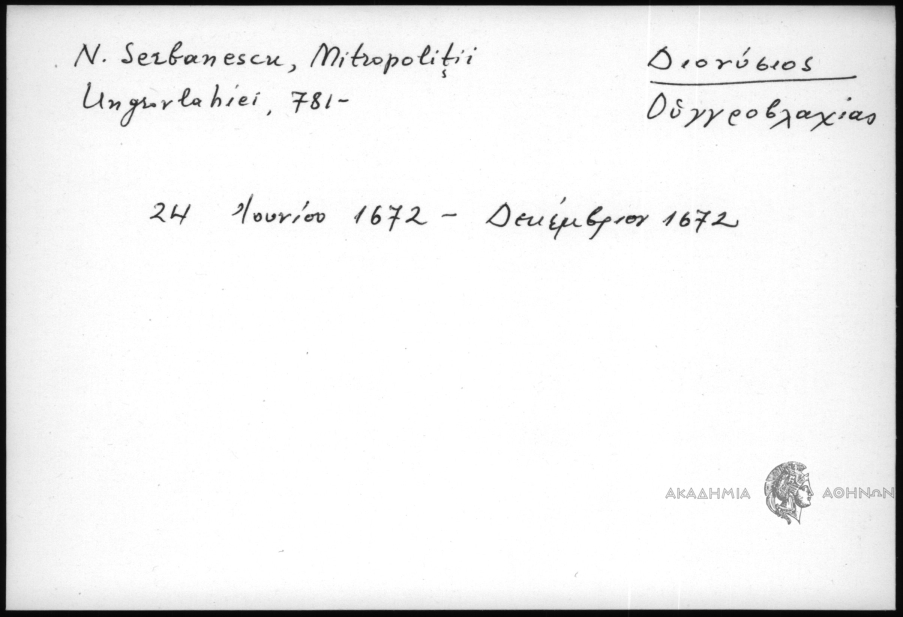 N. Serbanescu, Mitropoliţii
Ungrovlahiei, 781-
Διονύσιος
Οὑγγροβλαχίας
24 Ἰουνίου 1672 - Δεκέμβριον 1672
ΑΚΑΔΗΜΙΑ ΑΘΗΝΩΝ